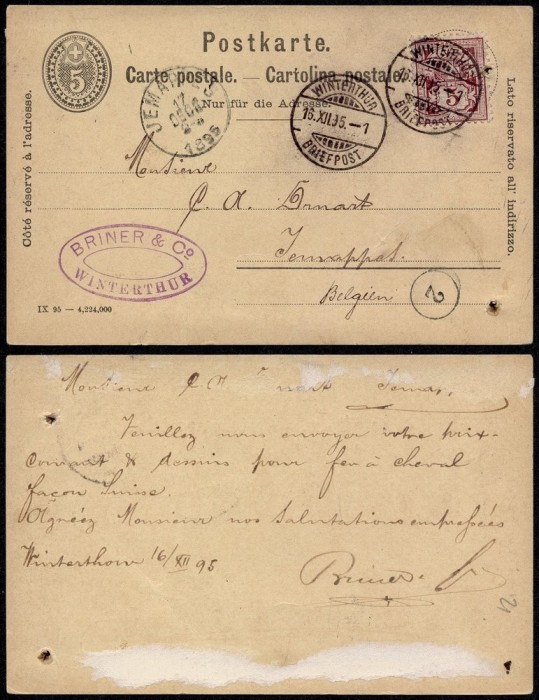 5
Postkarte.
Carte postale. — Cartolina postale.
Nur für die Adresse.
Côté réservé à l'adresse.
Lato riservato all' indirizzo.
JEMAPPES
17
DECE
1895
WINTERTHUR
16.XII.95.-1
BRIEFPOST
WINTERTHUR
16.XII.95.-1
BRIEFPOST
5
Monsieur
Jemappes
Belgien
BRINER & Co
WINTERTHUR
2
IX 95 — 4,224,000
Monsieur
Veuillez nous envoyer votre prix-
Courant & dessins pour fer à cheval
façon Suisse.
Agréez Monsieur nos Salutations empressées
Winterthour 16/XII 95
Briner & Co